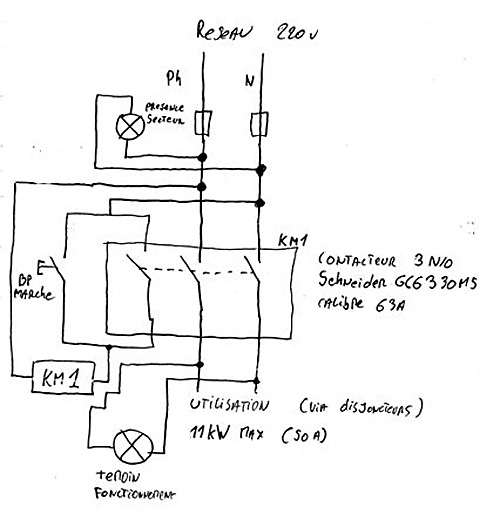 Reseau 220v
Ph
N
presence
secteur
KM1
contacteur 3 N/O
Schneider GC6330M5
calibre 63A
BP
marche
KM1
utilisation (via disjoncteurs)
11kW max (50A)
temoin
fonctionnement